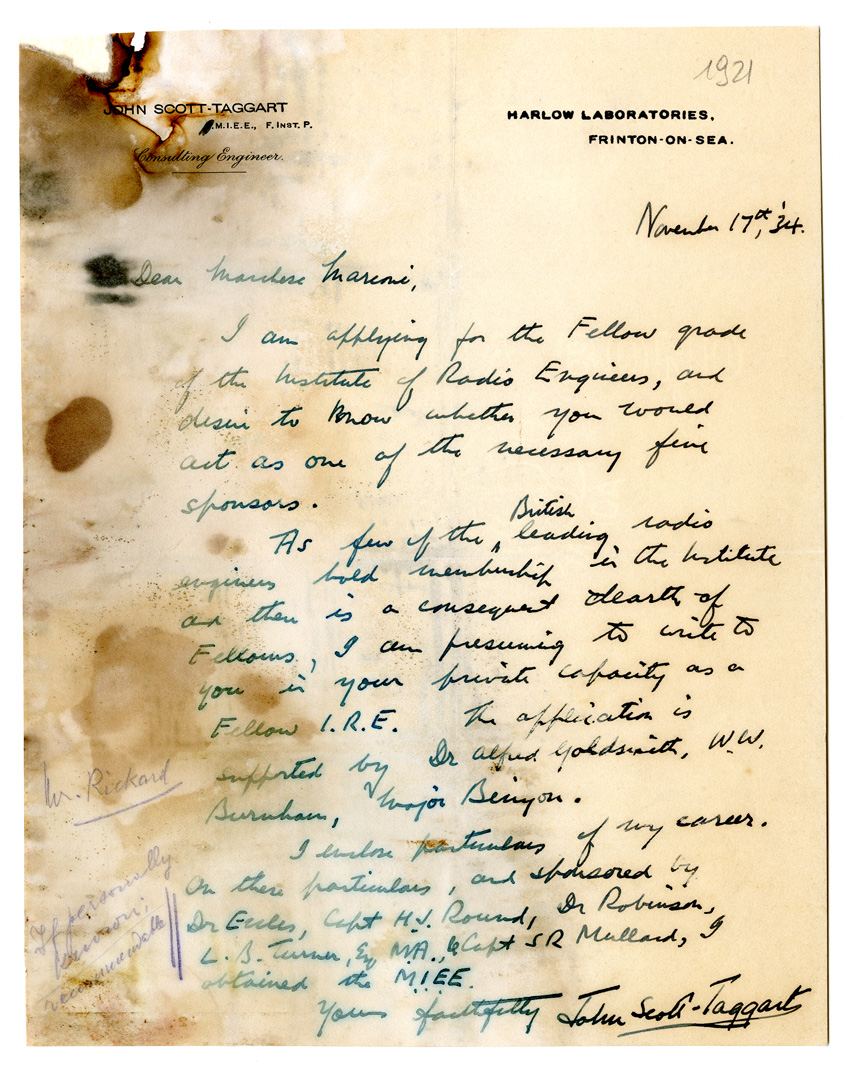 1921
JOHN SCOTT-TAGGART
M.I.E.E., F. INST. P.
Consulting Engineer.
HARLOW LABORATORIES,
FRINTON-ON-SEA.
November 17th, '34.
Dear Marchese Marconi,
I am applying for the Fellow grade
of the Institute of Radio Engineers, and
desire to know whether you would
act as one of the necessary five
sponsors.
As few of the British leading radio
engineers hold membership in the Institute
and there is a consequent dearth of
Fellows, I am presuming to write to
you in your private capacity as a
Fellow I.R.E. The application is
supported by Dr Alfred Goldsmith, W.W.
Burnham, Major Binyon.
I enclose particulars of my career.
On these particulars, and sponsored by
Dr Eccles, Capt H.J. Round, Dr Robinson,
L. B. Turner, Esq M.A., & Capt S R Mullard, I
obtained the M.I.E.E.
Yours faithfully John Scott-Taggart
Mr. Rickard
If personally
known;
recommendable